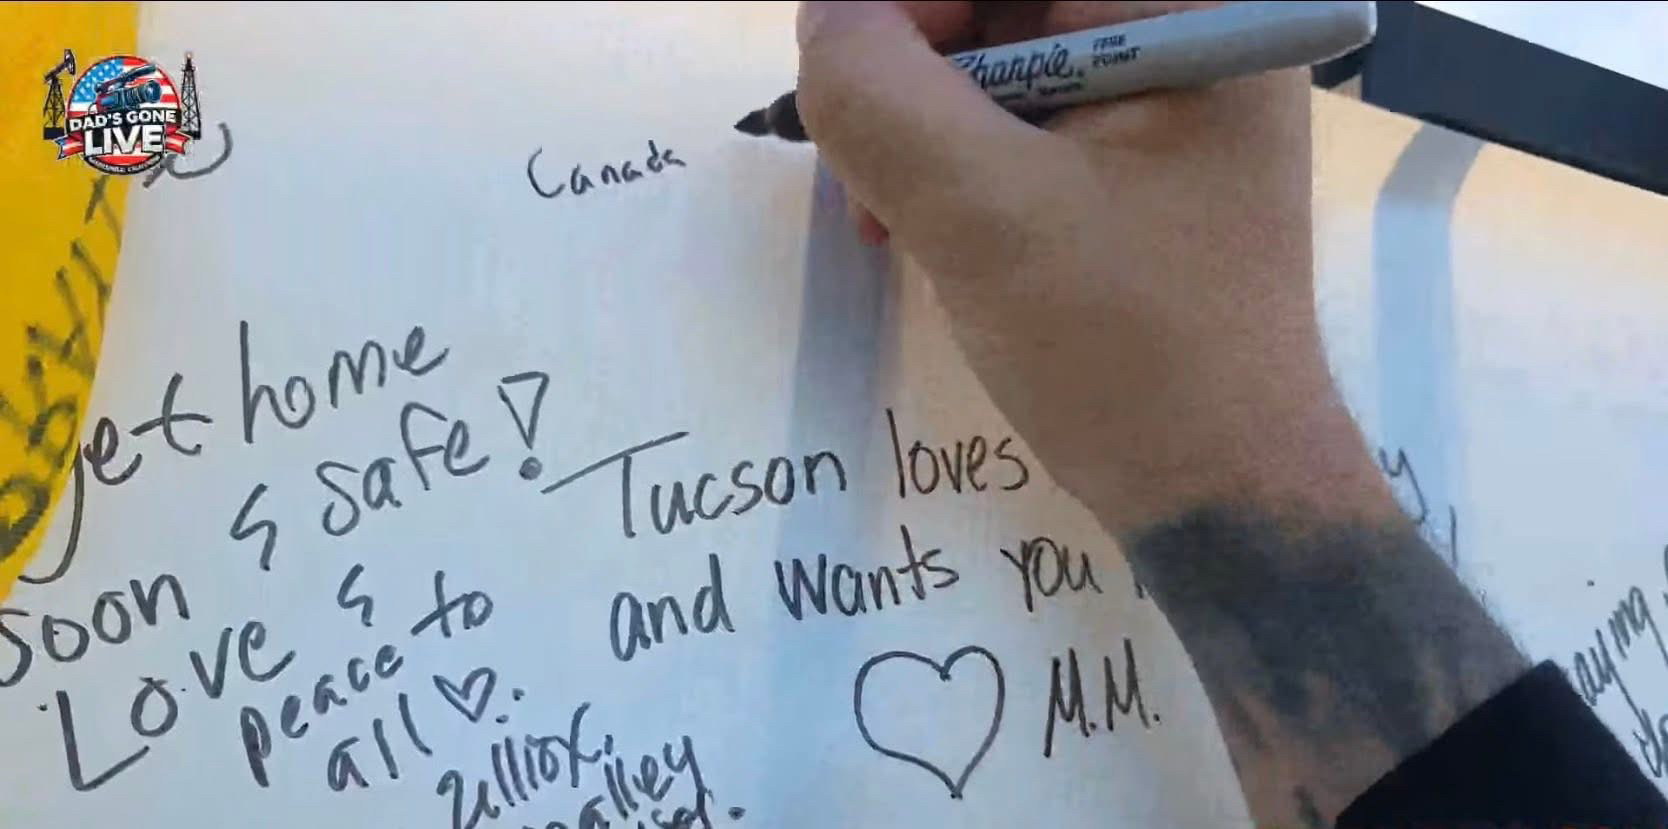 DAD'S GONE
LIVE
Sharpie
FINE
POINT
Canada
get home
soon & safe!
Love &
peace to
all
Tucson loves
and wants you
M.M.